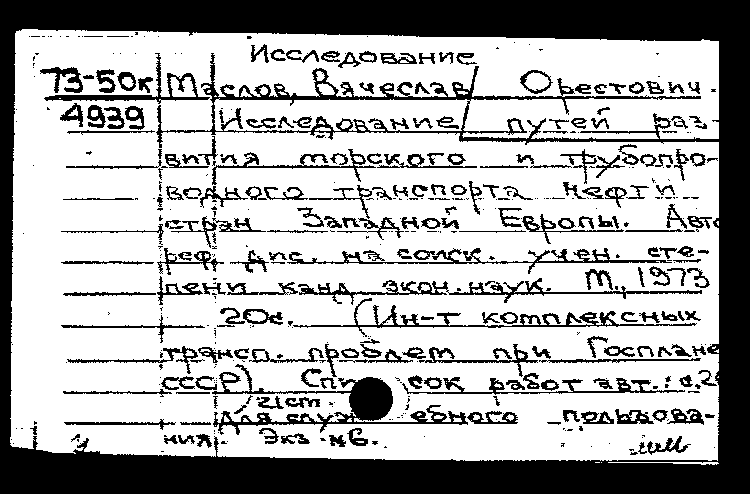 Исследование
73-50к Маслов, Вячеслав Орестович.
4939 Исследование путей раз-
вития морского и трубопро-
водного транспорта нефти
стран Западной Европы. Авто
реф. дис. на соиск. учен. сте-
пени канд. экон. наук. М., 1973
20с. (Ин-т комплексных
трансп. проблем при Госплане
СССР). Список работ авт.: с. 20
21ст.
Для служебного пользова-
ния. Экз. №6.